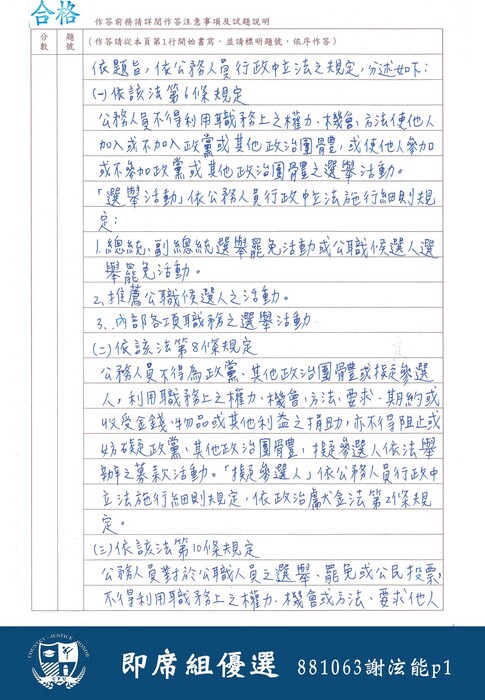 合格
作答前務請詳閱作答注意事項及試題說明
分數
題號
(作答請從本頁第1行開始書寫,並請標明題號,依序作答)
依題旨,依公務人員行政中立法之規定,分述如下:
(一)依該法第6條規定
公務人員不得利用職務上之權力、機會、方法使他人
加入或不加入政黨或其他政治團體,或使他人參加
或不參加政黨或其他政治團體之選舉活動。
「選舉活動」依公務人員行政中立法施行細則規
定:
1.總統、副總統選舉罷免活動或公職候選人選
舉罷免活動。
2.推薦公職候選人之活動。
3.內部各項職務之選舉活動
(二)依該法第8條規定
公務人員不得為政黨、其他政治團體或擬參選
人,利用職務上之權力、機會、方法、要求、期約或
收受金錢、物品或其他利益之捐助,亦不得阻止或
妨礙政黨、其他政治團體,擬參選人依法舉
辦之募款活動。「擬參選人」依公務人員行政中
立法施行細則規定,依政治獻金法第2條規
定。
(三)依該法第10條規定
公務人員對於公職人員之選舉、罷免或公民投票,
不得利用職務上之權力、機會或方法、要求他人
即席組優選 881063謝泫能p1